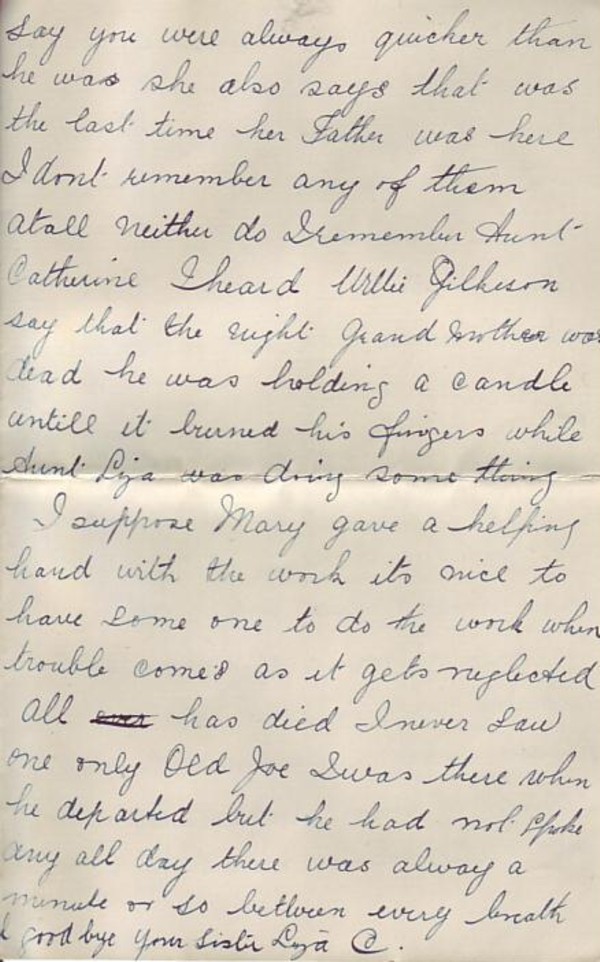 say you were always quicker than
he was she also says that was
the last time her Father was here
I dont remember any of them
atall neither do I remember Aunt
Catherine I heard Willie Gilkeson
say that the night Grand Mother was
dead he was holding a candle
untill it burned his fingers while
Aunt Liza was doing some thing
I suppose Mary gave a helping
hand with the work its nice to
have some one to do the work when
trouble comes as it gets neglected
All has died I never saw
one only Old Joe I was there when
he departed but he had not spoke
any all day there was alway a
minute or so between every breath
good bye your sister Liza C.